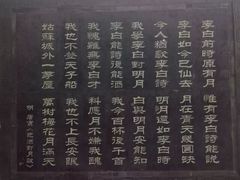 李白前時原有月 唯有李白詩能說
李白如今已仙去 月在青天幾圓缺
今人猶歌李白詩 明月還如李白時
我學李白對明月 白與明月安能知
李白能詩復能酒 我今百杯復千首
我愧雖無李白才 料應月不嫌我醜
我也不登天子船 我也不上長安眠
姑蘇城外一茅屋 萬樹梅花月滿天
明 唐寅《把酒對月歌》